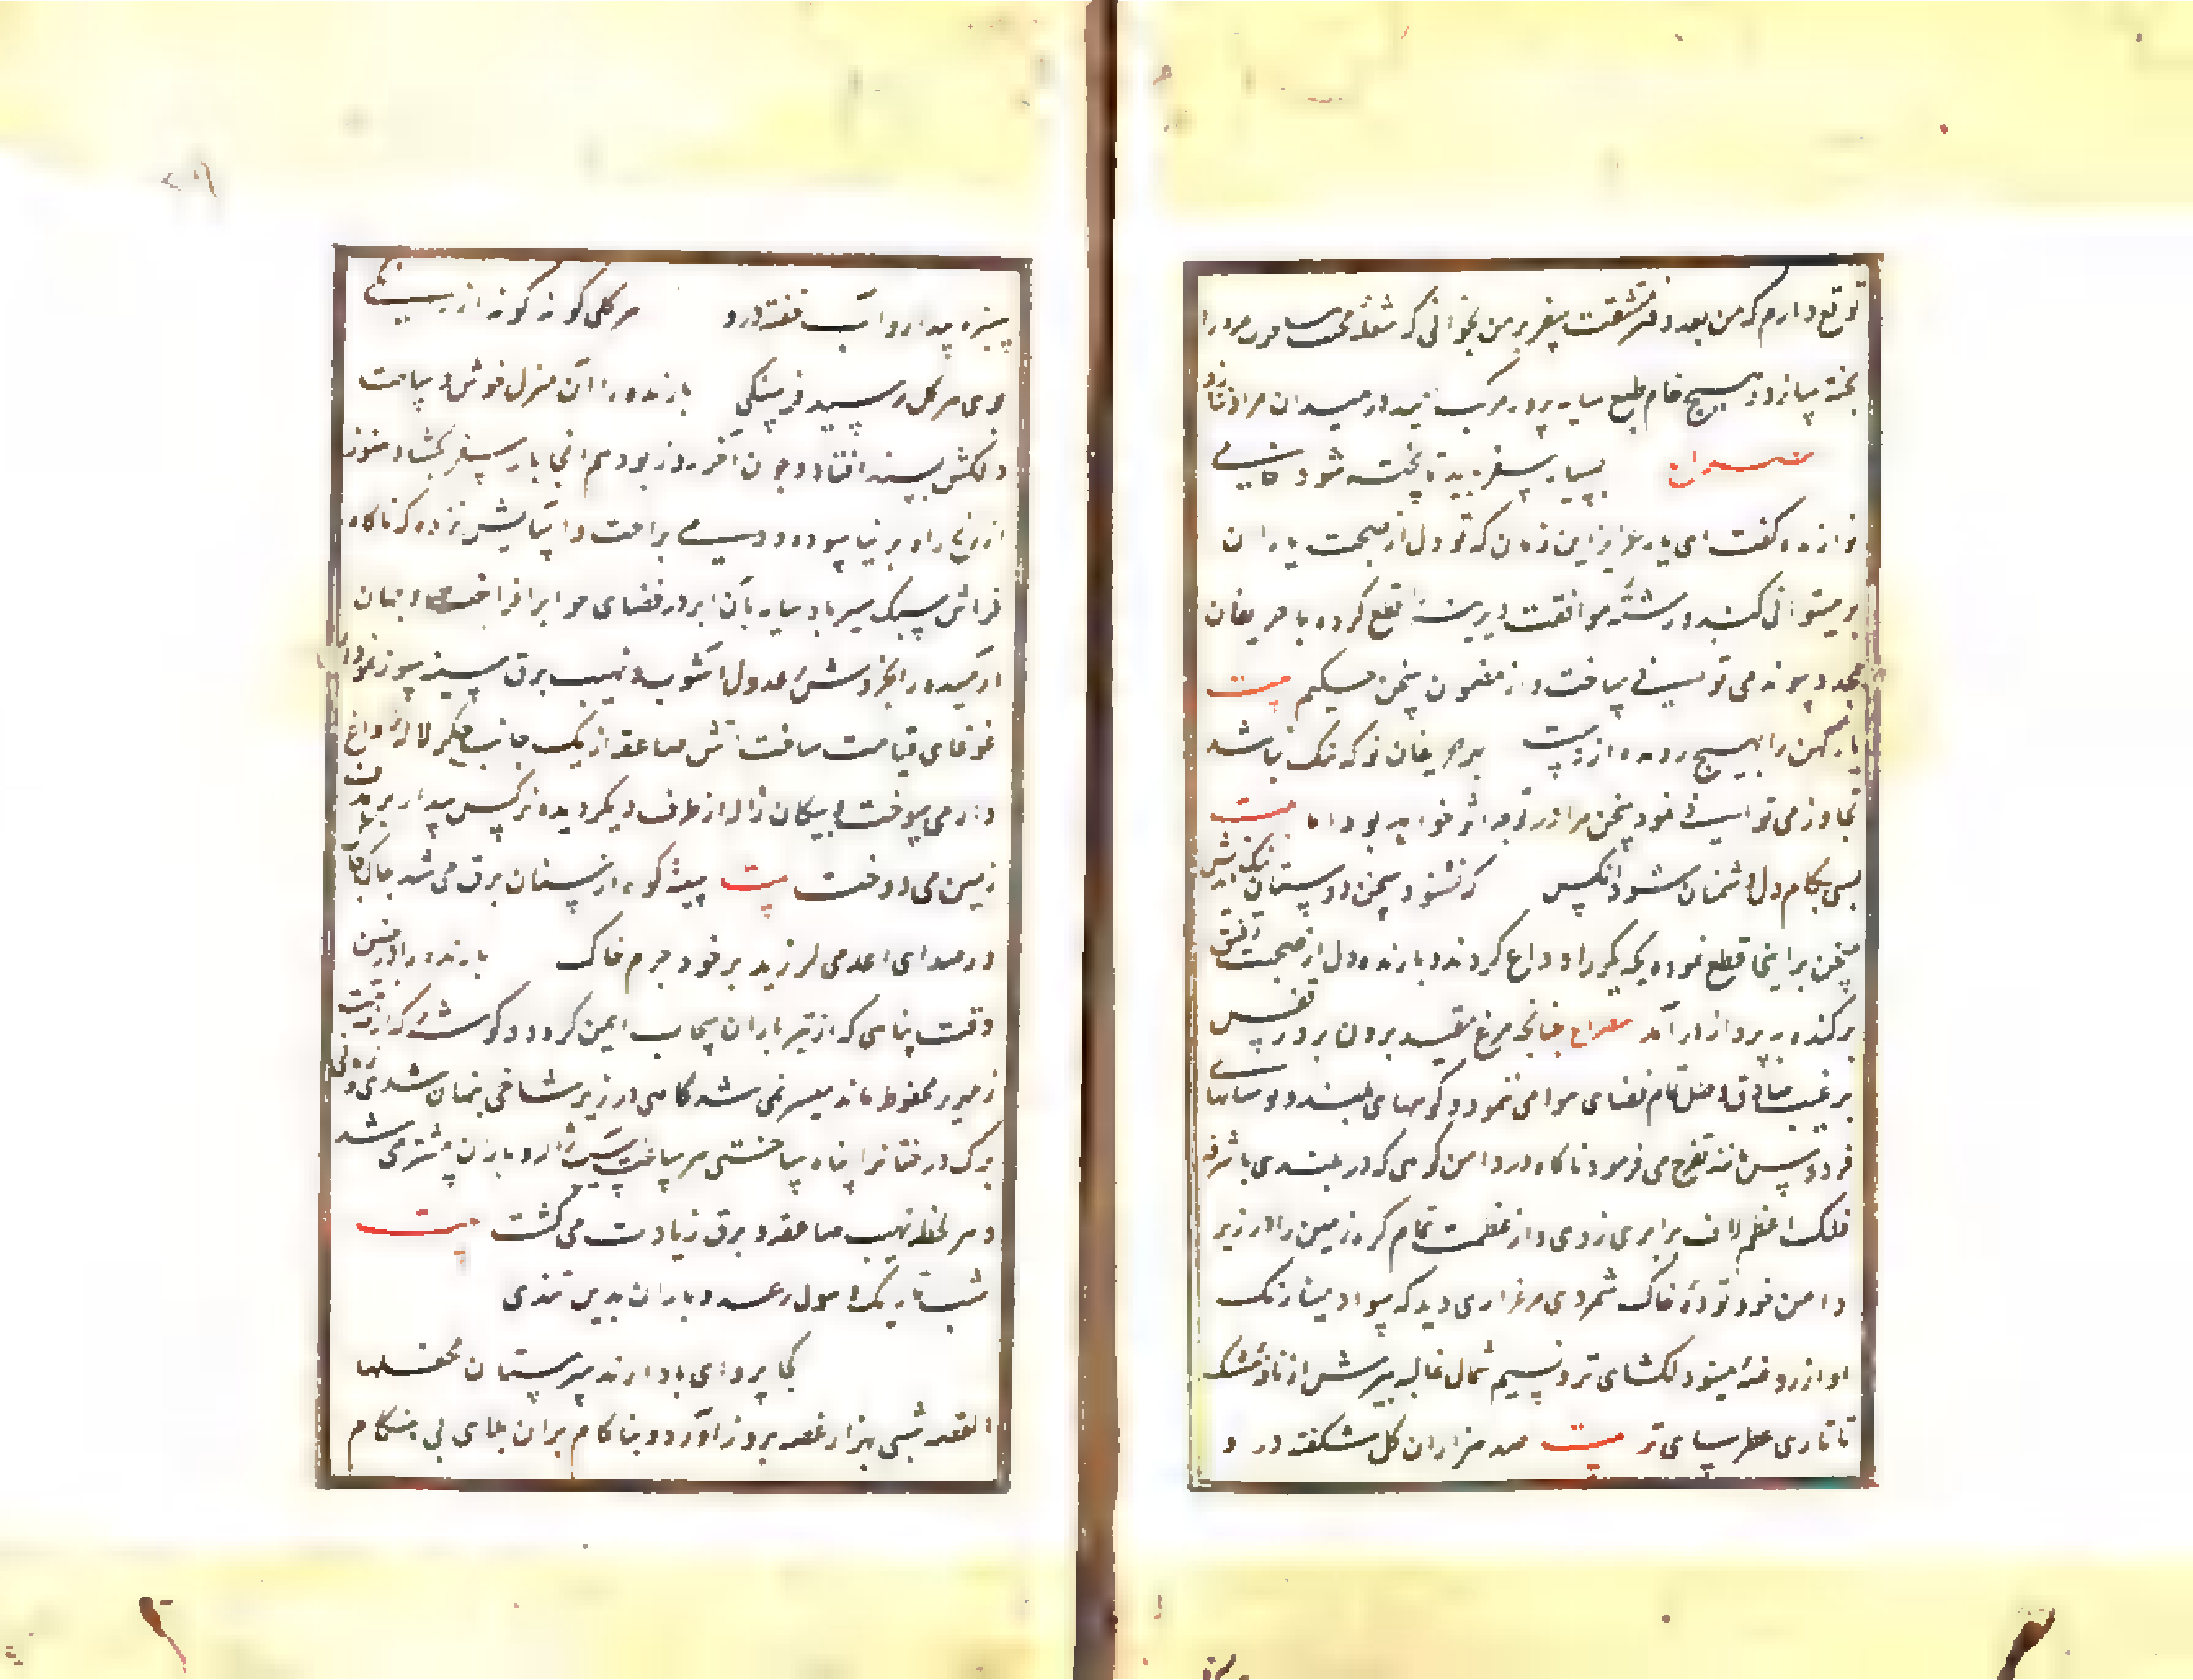 توقع دارم که من بعد دفتر مشقت سفر بر من نخوانی که شعلهٔ محنت سفر مرد را
پخته سازد و هیچ خام طبع سایه پرور مرکب امید در میدان مراد نتازد
بسیار سفر باید تا پخته شود خامی
نوازنده گفت ای یار عزیز این زمان که تو دل از صحبت یاران
برمیتوانی کند و رشتهٔ موافقت دیرینه را قطع کرده با حریفان
مجدد پیوند می توانی ساخت و از مضمون سخن حکیم بیت
یار کهن را بهیچ رو مده از دست بر حریفان نو که نیک نباشد
تجاوز می توانی نمود سخن مرا در تو چه اثر خواهد بود اما بیت
بسی بکام دل دشمنان شود آنکس که نشنود سخن دوستان نیک اندیش
سخن بر اینجا قطع نموده یکدیگر را وداع کردند و بازنده دل از صحبت رفیق
برکنده به پرواز در آمد مصراع چنانچه مرغ مقید برون پرد ز قفس
برغبت صادق و میل تمام فضای هوا می نمود و کوههای بلند و بوستانهای
فردوس مانند تفرج می فرمود ناگاه در دامن کوهی که در بلندی با شرفهٔ
فلک اعظم لاف برابری زدی و از عظمت تمام کره زمین را در زیر
دامن خود تودهٔ خاک شمردی مرغزاری دید که سواد مینا رنگ
او از روضهٔ مینو دلکشای تر و نسیم شمال غالیه بیزش از نافهٔ مشک
تاتاری عطرسای تر بیت صد هزاران گل شکفته در و
سبزه بیدار و آب خفته درو هر گلی گونه گونه از رنگی
بوی هر گل رسیده فرسنگی بازنده را آن منزل خوش و ساحت
دلکش پسند افتاد و چون آخر روز بود هم آنجا بار سفر بگشاد هنوز
از رنج راه بر نیاسوده و دمی براحت و آسایش نزده که ناگاه
فراش سبک سیر باد سایه بان ابر در فضای هوا برافراخت و جهان
آرمیده را بخروش رعد دل آشوب و نهیب برق سینه سوز نمودار
غوغای قیامت ساخت آتش صاعقه از یک جانب جگر لالهٔ داغ
دار می سوخت و پیکان ژاله از طرف دیگر دیده نرگس بیدار بر هدف
زمین می دوخت بیت سینهٔ کوه از سنان برق می شد چاک چاک
در صدای رعد می لرزید بر خود جرم خاک بازنده را در چنین
وقت پناهی که از تیر باران سحاب ایمن گردد و گوشه که از آسیب
زمهریر محفوظ ماند میسر نمی شد گاهی در زیر شاخی پنهان شدی و زمانی
برگ درختانرا پناه ساختی هر ساعت آسیب ژاله و باران بیشتر می شد
و هر لحظه نهیب صاعقه و برق زیادت می گشت بیت
شب تاریک و هول رعد و باران بدین تندی
کجا پروای ما دارند سرمستان محفلها
القصه شبی بهزار غصه بروز آورد و بناکام بر آن بلای بی هنگام